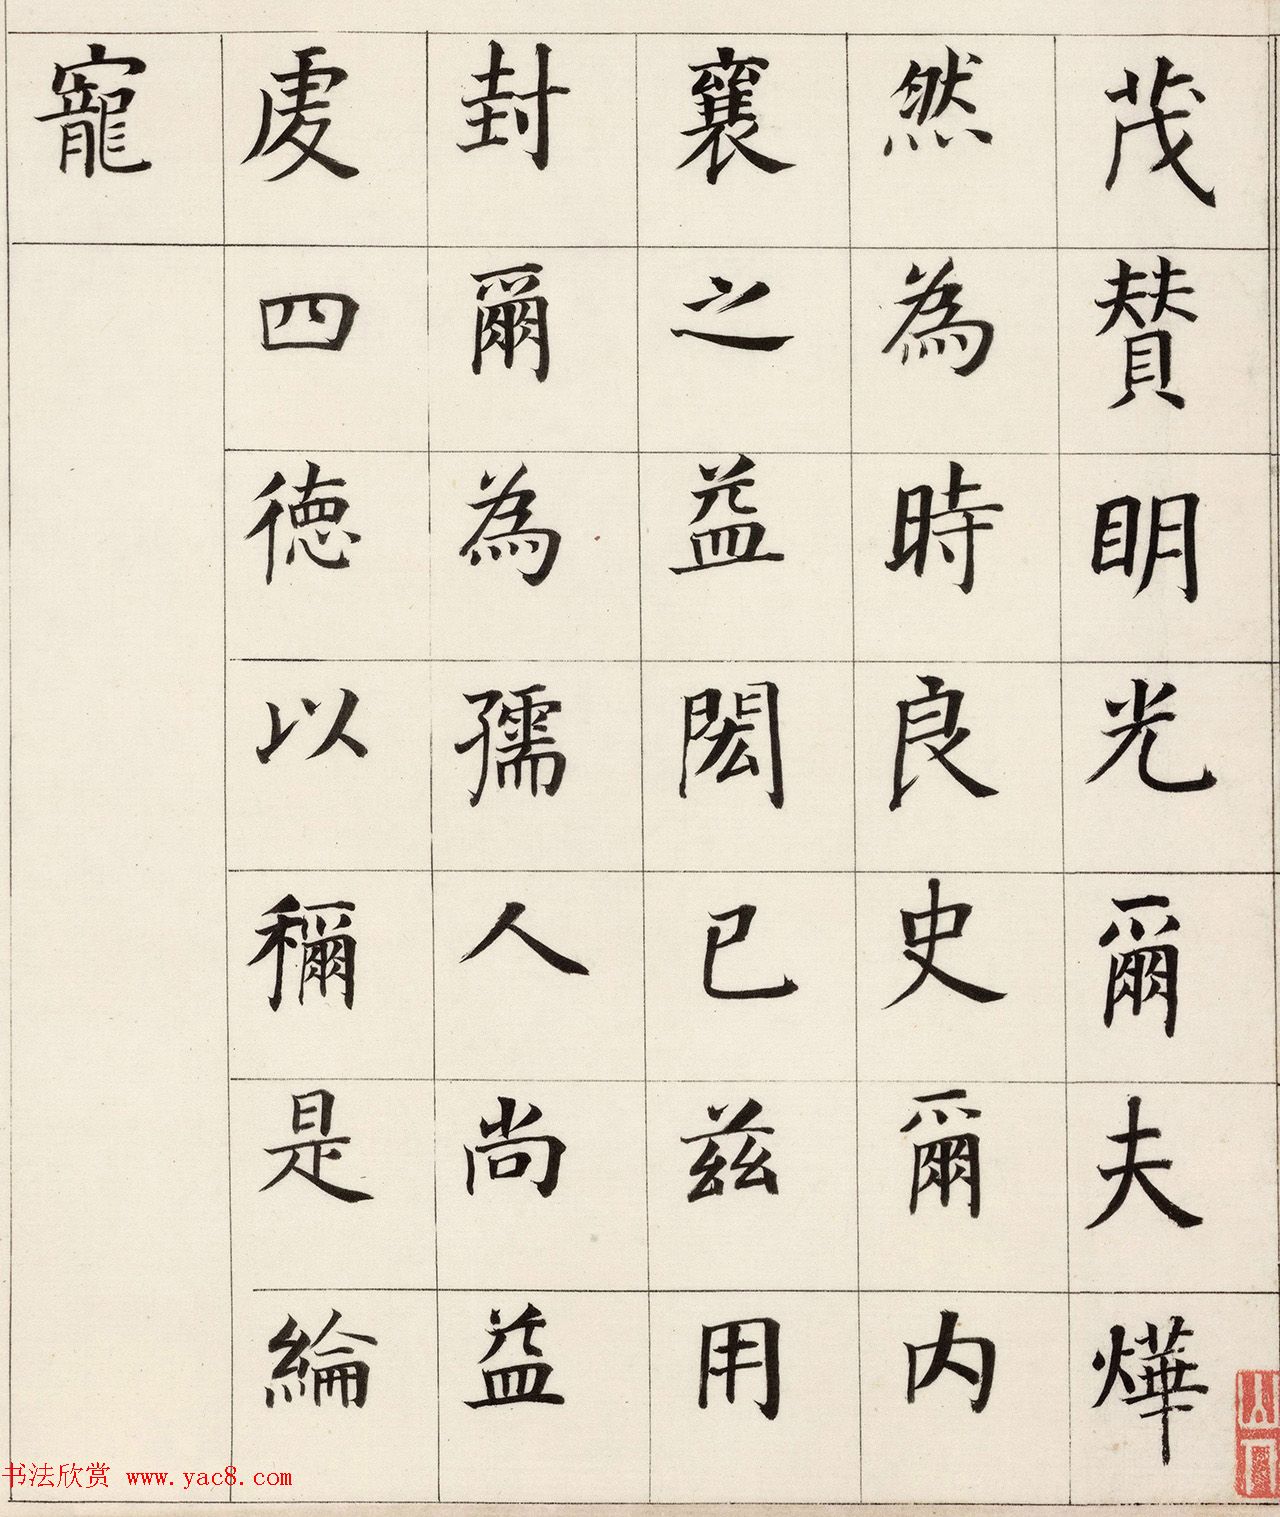 茂賛眀光爾夫燁
然為時良史爾内
襄之益閎已兹用
封爾為孺人尚益
虔四徳以穪是綸
寵
书法欣赏 www.yac8.com